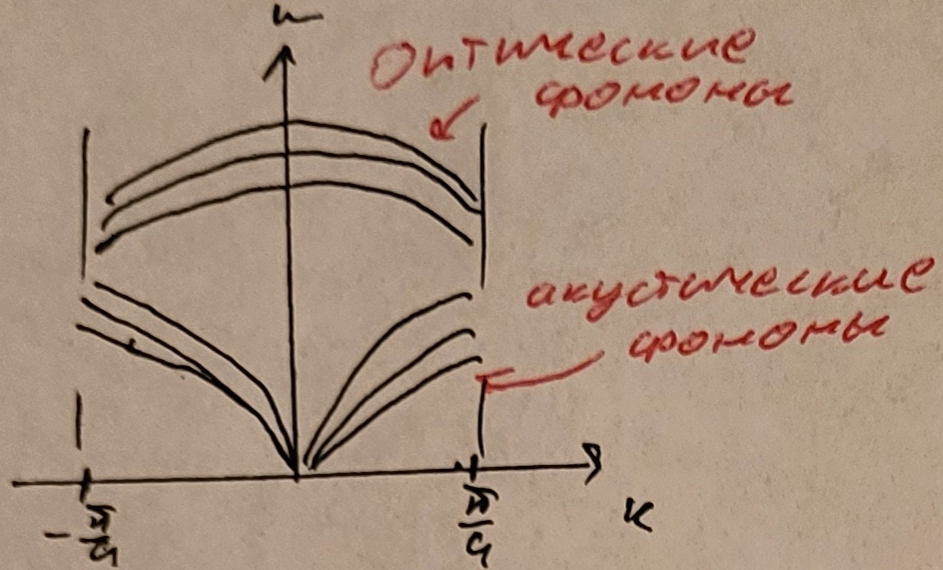 Оптические
фононы
акустические
фононы
-π/a
π/a
k